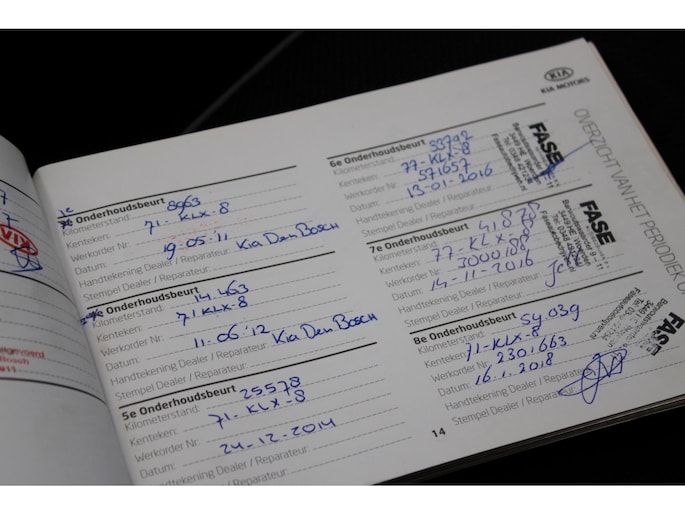 KIA
KIA MOTORS
OVERZICHT VAN HET PERIODIEK O
1e Onderhoudsbeurt
Kilometerstand: 8963
Kenteken: 71-KLX-8
Werkorder Nr:
Datum: 19-05-'11
Handtekening Dealer / Reparateur: Kia Den Bosch
Stempel Dealer / Reparateur:
Onderhoudsbeurt
Kilometerstand: 14.463
Kenteken: 71 KLX-8
Werkorder Nr:
Datum: 11-06-'12
Handtekening Dealer / Reparateur: Kia Den Bosch
Stempel Dealer / Reparateur:
5e Onderhoudsbeurt
Kilometerstand: 25.578
Kenteken: 71-KLX-8
Werkorder Nr:
Datum: 24-12-2014
Handtekening Dealer / Reparateur:
Stempel Dealer / Reparateur:
6e Onderhoudsbeurt
Kilometerstand: 33792
Kenteken: 77-KLX-8
Werkorder Nr: 571657
Datum: 13-01-2016
Handtekening Dealer / Reparateur:
Stempel Dealer / Reparateur:
FASE
7e Onderhoudsbeurt
Kilometerstand: 41878
Kenteken: 77-KLX-8
Werkorder Nr: 3000188
Datum: 14-11-2016
Handtekening Dealer / Reparateur:
Stempel Dealer / Reparateur:
FASE
8e Onderhoudsbeurt
Kilometerstand: 54.039
Kenteken: 71-KLX-8
Werkorder Nr: 2301663
Datum: 16.1.2018
Handtekening Dealer / Reparateur:
Stempel Dealer / Reparateur:
FASE
14